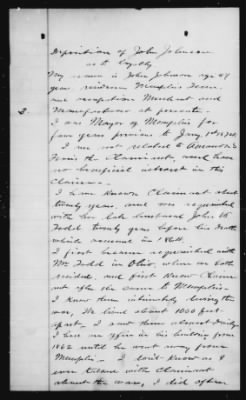 Deposition of John Johnson
as to loyalty
My name is John Johnson age 57
years, residence Memphis Tenn.
occupation Merchant and
Manufacturer at present.
I am Mayor of Memphis for
four years previous to Jany 1st 1874.
2. I am not related to
the Claimant, and have
no beneficial interest in this
Claim.
I have known Claimant about
twenty years, and was acquainted
with her late husband John W
Todd twenty years before his death
which occurred in 1864.
I first became acquainted with
Mr Todd in Ohio, where we both
resided, and first knew Claimant
after she came to Memphis.
I knew them intimately during the
war, We lived about 1000 feet
apart, I saw them almost daily
I have an office in his building from
1862 until he went away from
Memphis
ever talked with Claimant
about the war, I did often